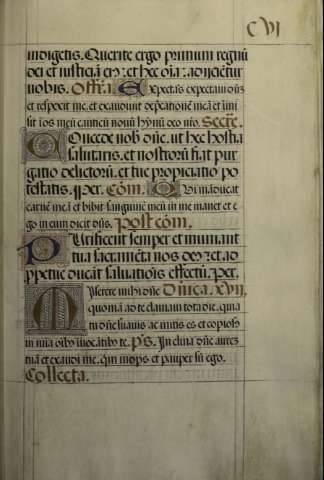 C VI
indigetis. Querite ergo primum regnũ
dei et iusticiã eiꝰ: et hec oĩa: adiicientur
uobis. Offra. Expectãs expectaui dñm
et respexit me. et exaudiuit dep̃cationẽ meã et imi
sit ĩ os meũ canticũ nouũ hỹnũ deo nr̃o. Secre.
Concede nob̃ dñe. ut hec hostia
salutaris. et nostrorũ fiat pur
gatio delictorũ. et tue propiciatio po
testatis. Per. Cõm. Qui mãducat
carnẽ meã et bibit sanguinẽ meũ in me manet et e
go in eum dicit dñs. Post cõm.
Purificent semper et muniant
tua sacramẽta nos deꝰ: et ad
ppetue ducãt saluatiõis effectũ. Per.
Miserere mihi dñe Dñica. xvii.
quoniã ad te clamaui tota die. quia
tu dñe suauis ac mitis es et copiosꝰ
in mĩa oĩbꝰ iuocãtibꝰ te. p̃s. Inclina dñe aurẽ
tuã et exaudi me. qm̃ inops et pauper sũ ego.
Collecta.